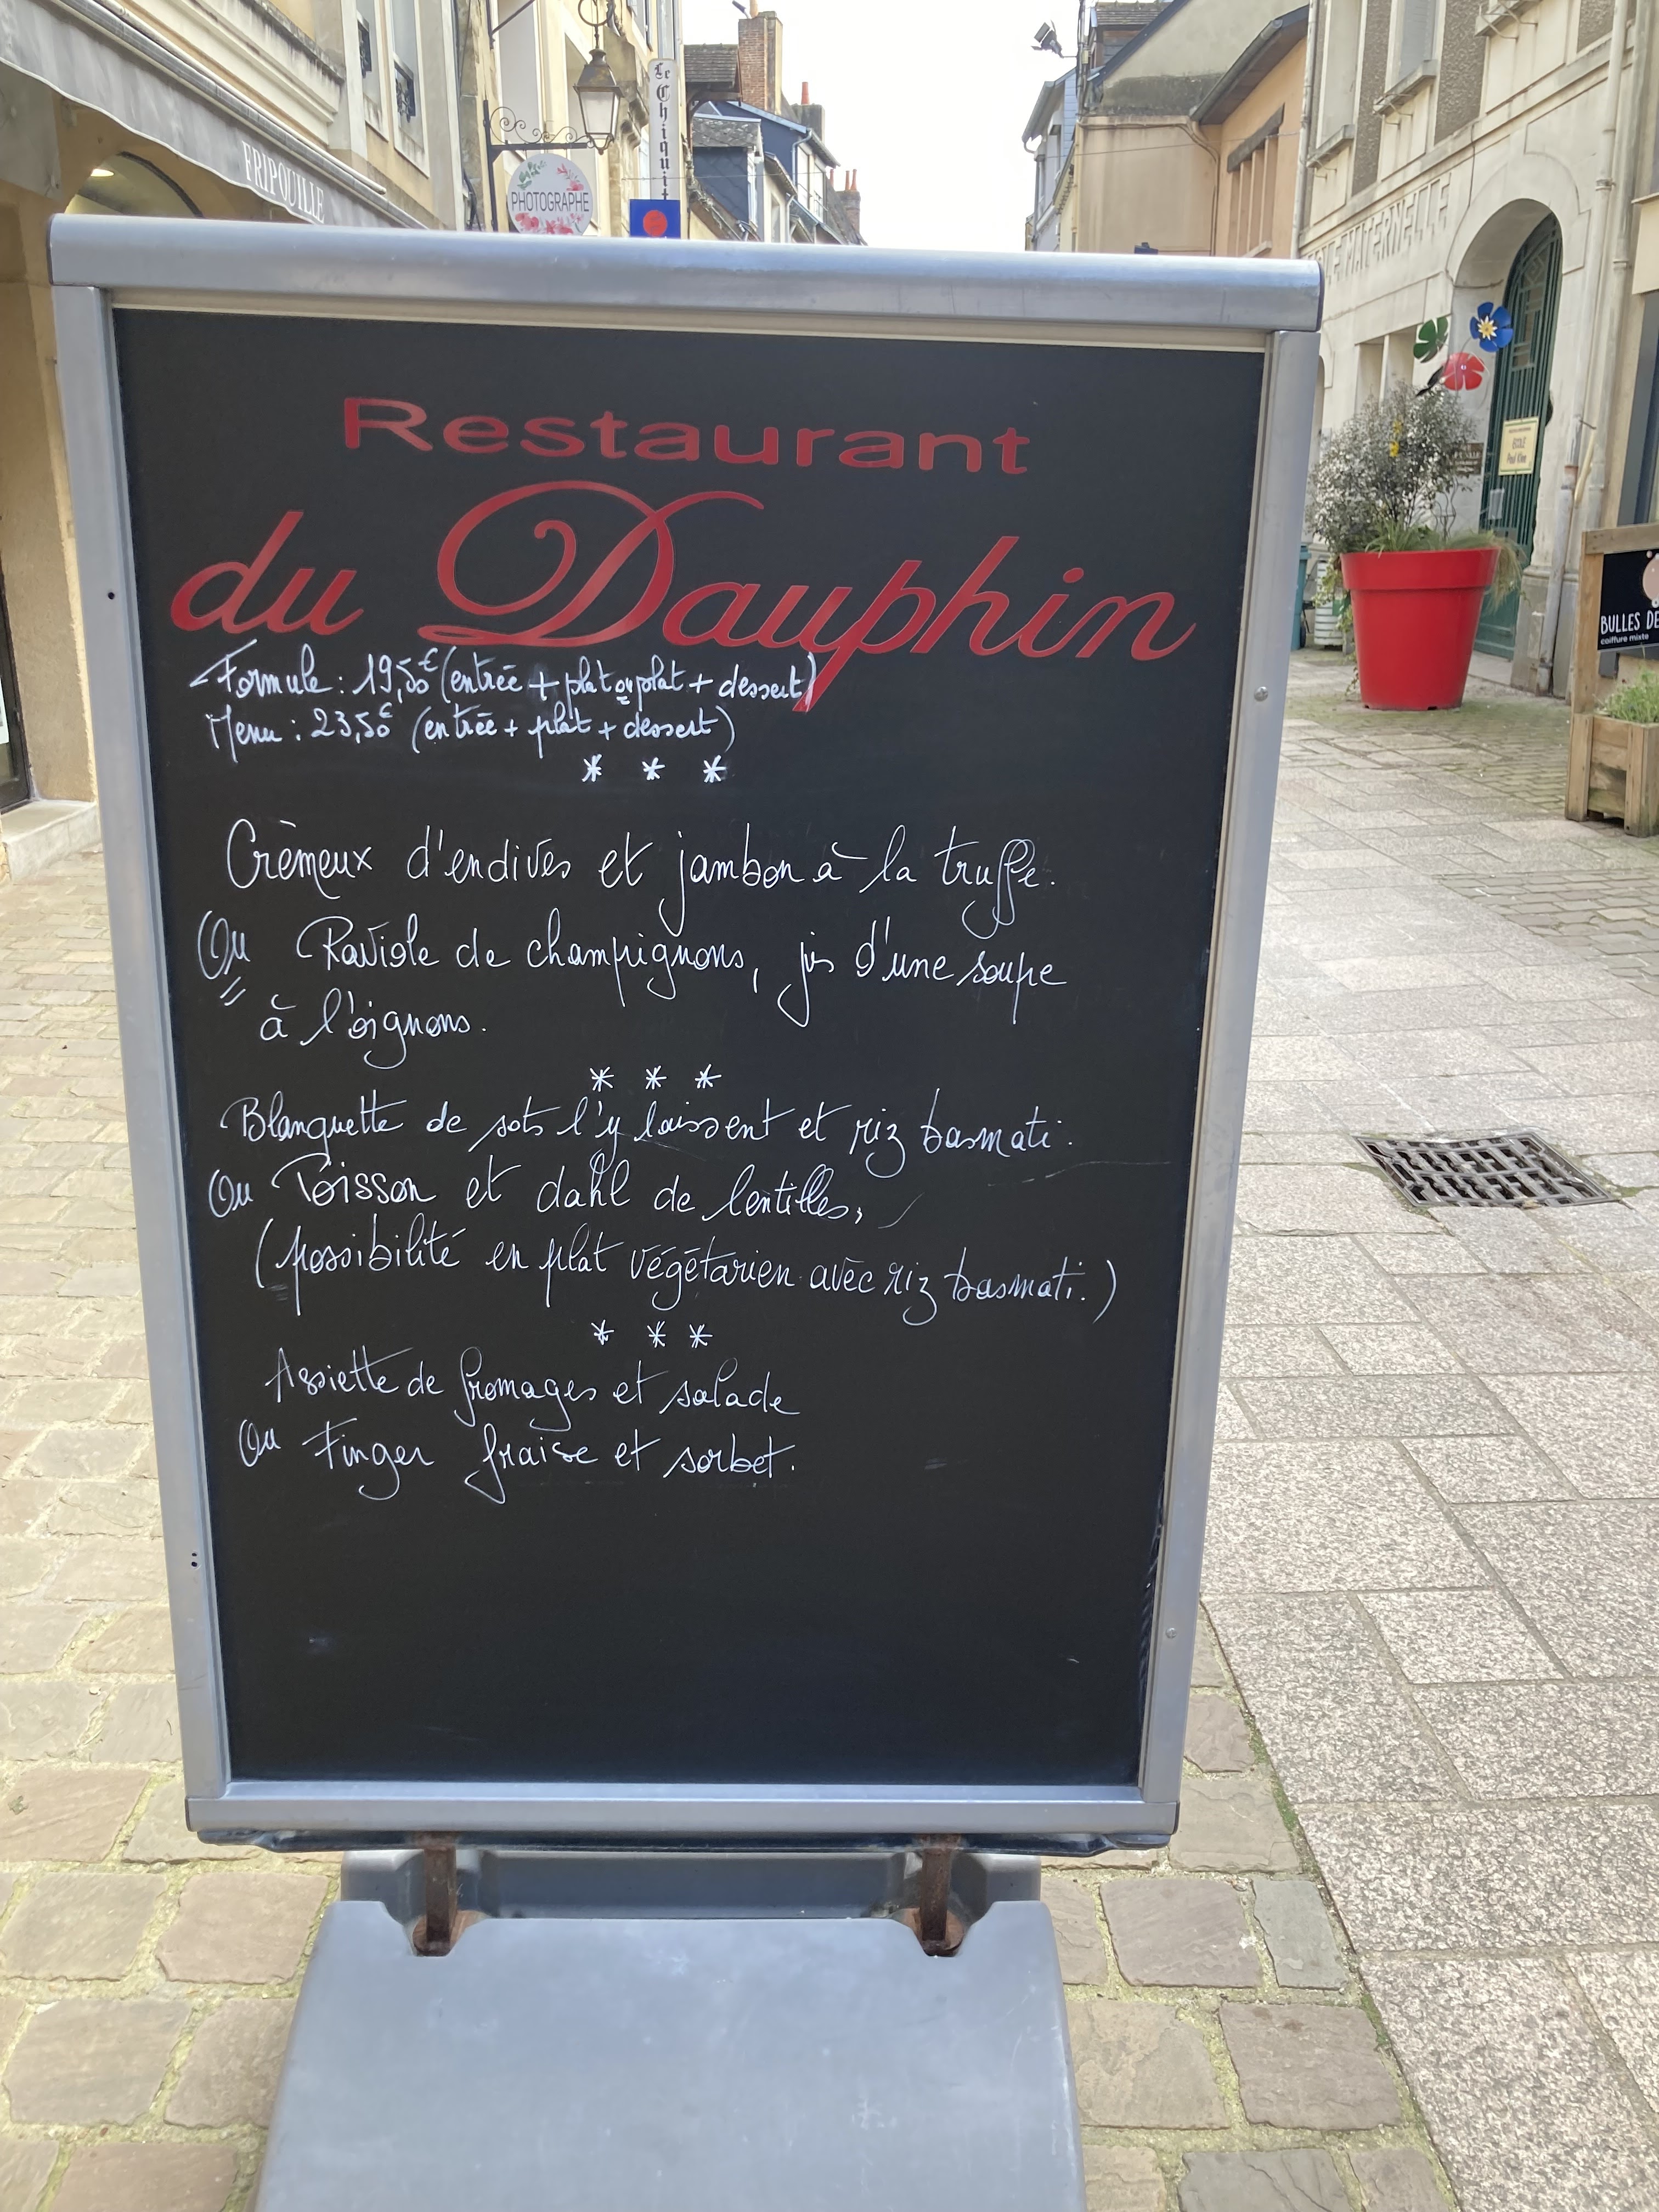 FRIPOUILLE
PHOTOGRAPHE
Le Chiquit
MATERNELLE
ECOLE
Paul Klee
BULLES DE
coiffure mixte
Restaurant
du Dauphin
Formule : 19,50€ (entrée + plat ou plat + dessert)
Menu : 23,50€ (entrée + plat + dessert)
* * *
Crèmeux d'endives et jambon à la truffe.
Ou Raviole de champignons, jus d'une soupe
à l'oignons.
* * *
Blanquette de sots l'y laissent et riz basmati.
Ou Poisson et dahl de lentilles,
(possibilité en plat végétarien avec riz basmati.)
* * *
Assiette de fromages et salade
Ou Finger fraise et sorbet.